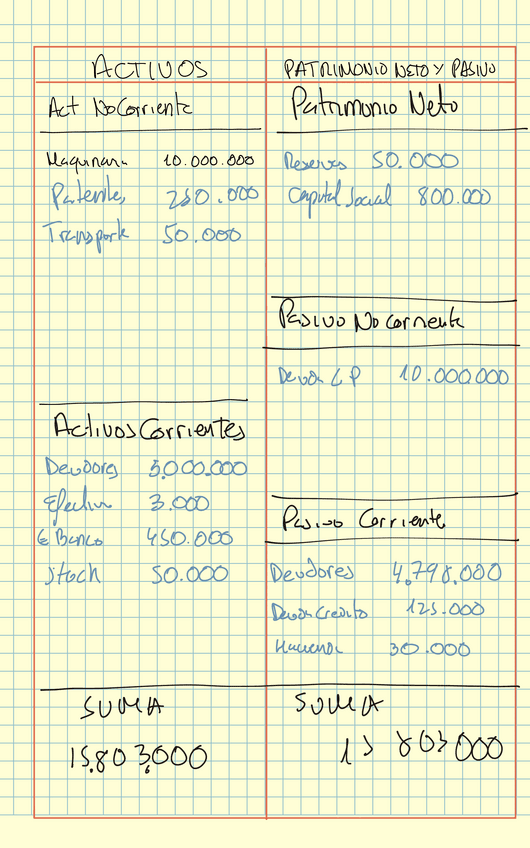 ACTIVOS
Act No Corriente
Maquinaria 10.000.000
Patentes 250.000
Transporte 50.000
Activos Corrientes
Deudores 5,000.000
Efectivo 3.000
€ Banco 450.000
Stock 50.000
SUMA
15,803,000
PATRIMONIO NETO Y PASIVO
Patrimonio Neto
Reservas 50.000
Capital Social 800.000
Pasivo No Corriente
Deuda LP 10.000.000
Pasivo Corriente
Deudores 4,798,000
Deuda Credito 125.000
Hacienda 30.000
SUMA
15 803 000